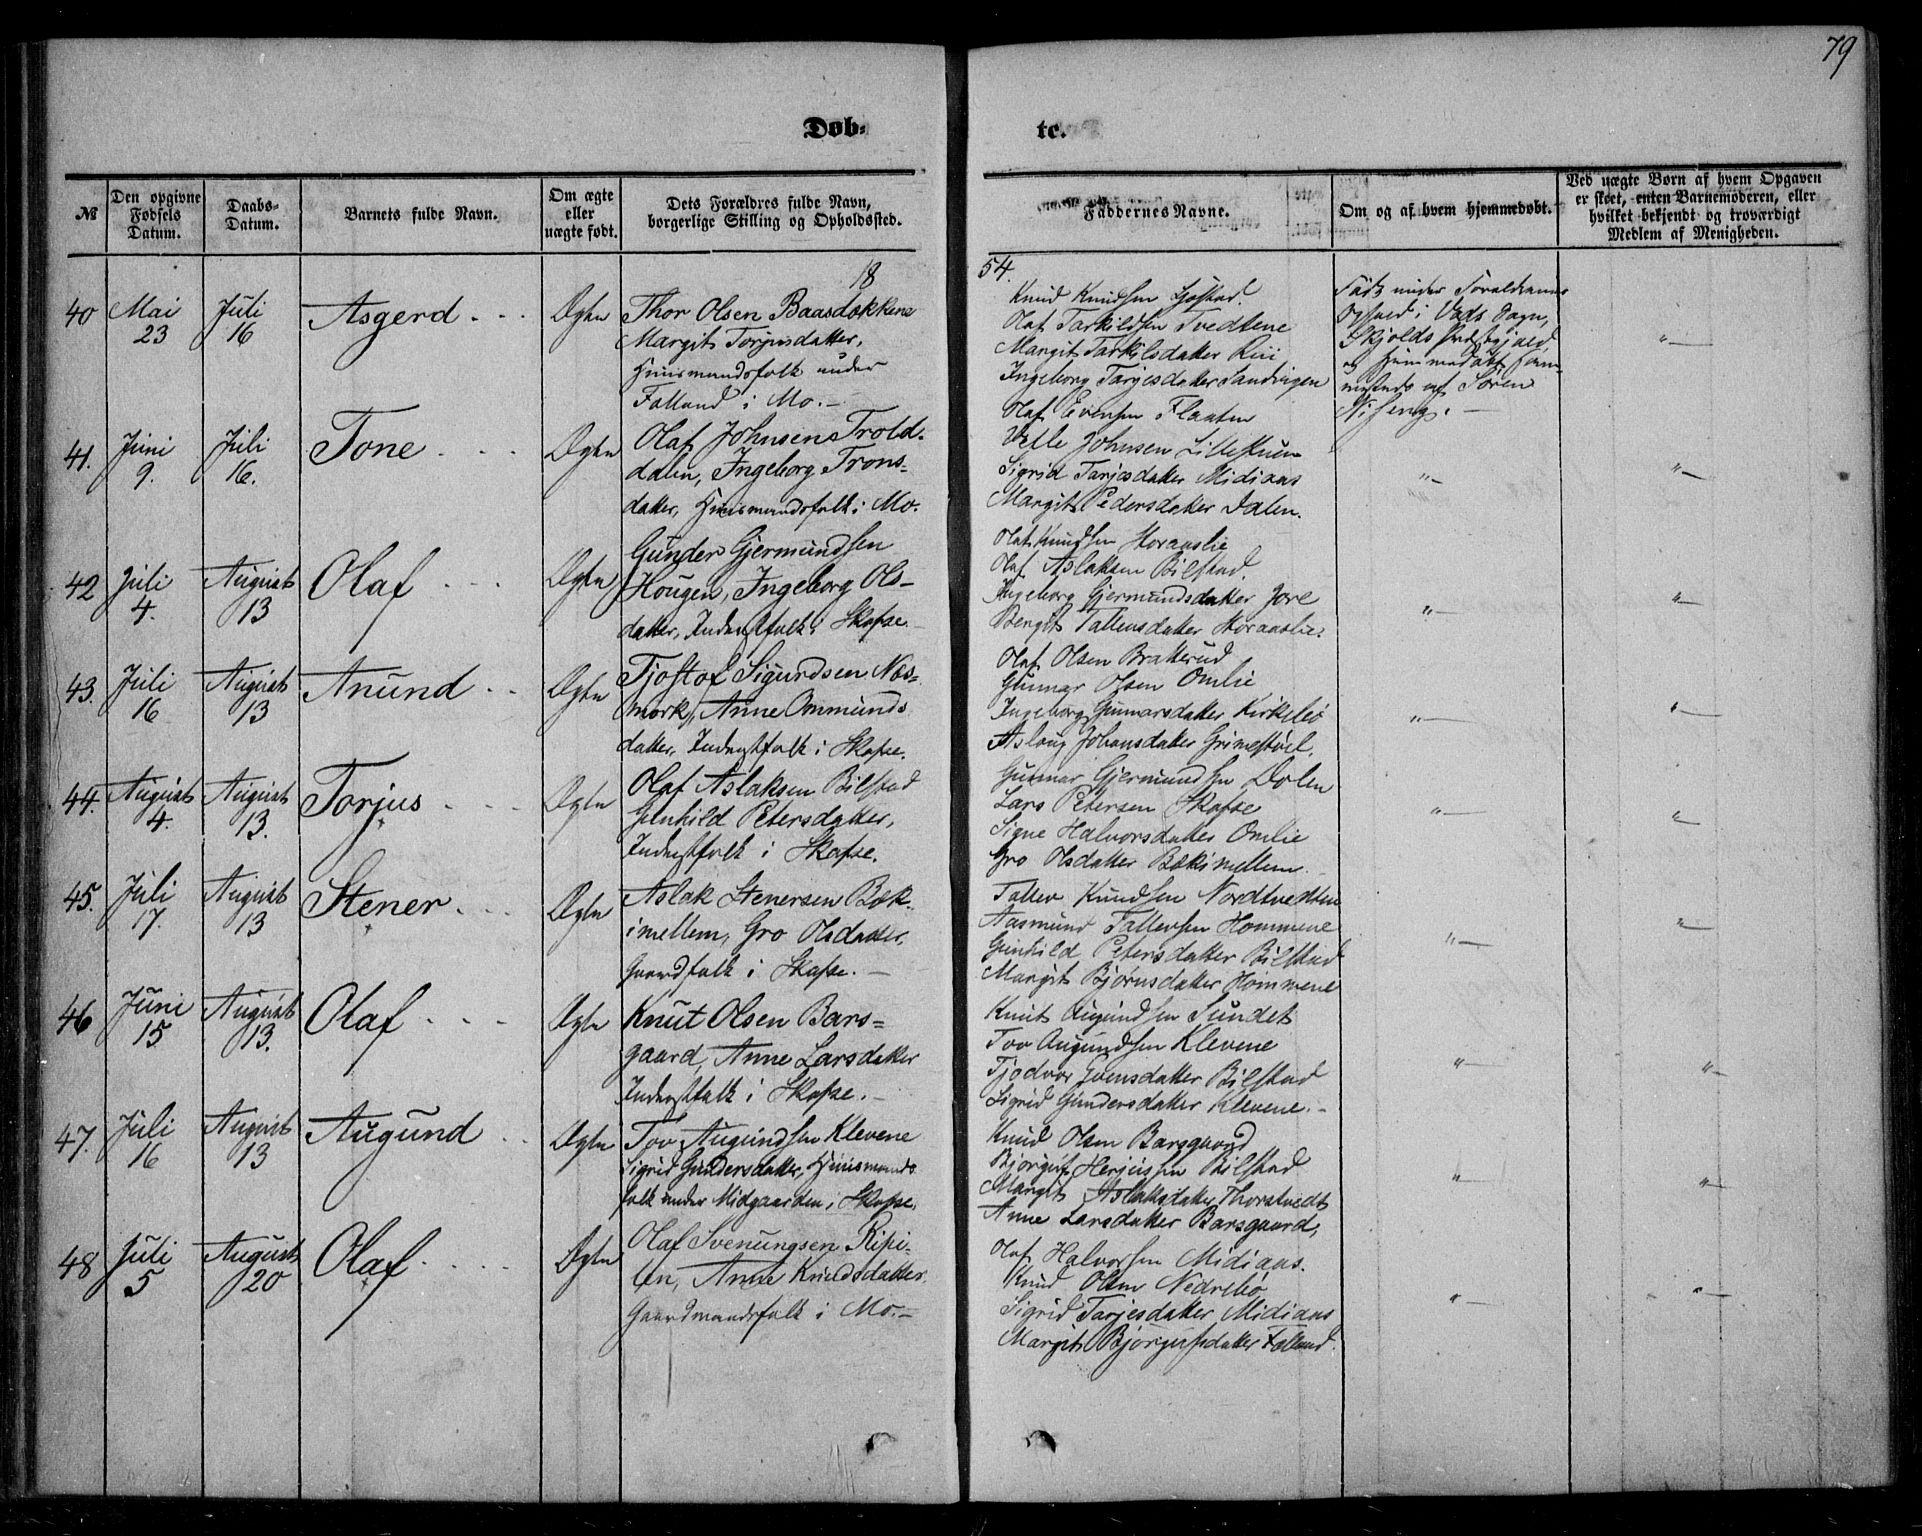 79
Døb-
te.
№
Den opgivne Fødsels Datum.
Daabs-Datum.
Barnets fulde Navn.
Om ægte eller uægte født.
Dets Forældres fulde Navn, borgerlige Stilling og Opholdssted.
Faddernes Navne.
Om og af hvem hjemmedøbt.
Ved uægte Børn af hvem Opgaven er skeet, enten Barnemoderen, eller hvilket bekjendt og troværdigt Medlem af Menigheden.
18
54.
40 Mai 23 Juli 16 Asgerd Ægte
Thor Olsen Baasdokkene
Margit Torjusdatter,
Huusmandsfolk under
Falland i Mo.—
Knud Knudsen Sjostad.
Olaf Tarkildsen Tvedtene
Margit Tarkilsdatter Rui
Ingeborg Tarjesdatter Sandvigen
Født under Forældrenes
Ophold i Vads Sogn,
Skjolds Præstegjæld,
og hjemmedøbt sam-
mesteds af Søren
41. Juni 9. Juli 16. Tone Ægte
Olaf Johnsen Trold-
dalen, Ingeborg Trons-
datter, Huusmandsfolk i Mo.
Olaf Evensen Flaaten
Johnsen
Sigrid Tarjesdatter Midiaas
Margit Pedersdatter Dalen.
42 Juli 4. August 13 Olaf Ægte
Gunder Gjermundsen
Hougen, Ingeborg Ols-
datter, Inderstfolk i Skafse.
Olaf Knudsen Moraaslie
Olaf Aslaksen Bilstad.
Ingeborg Gjermundsdatter Jore
Bergit Tallevsdatter Moraaslie.
43. Juli 16 August 13 Anund Ægte
Tjostof Sigurdsen Næs-
mork, Anne Ommunds
datter, Inderstfolk i Skafse.
Olaf Olsen Brakterud
Gunnar Olsen Omlie
Ingeborg Gunnarsdatter Kirkebø
Aslaug Johansdatter Grimestøel.
44. August 4. August 13. Torjus Ægte
Olaf Aslaksen Bilstad
Gunhild Petersdatter,
Inderstfolk i Skafse.
Gunnar Gjermundsen Dolen
Lars Petersen Skafse
Signe Halvorsdatter Omlie
Gro Olsdatter Bækimellem.
45. Juli 17. August 13 Stener Ægte
Aslak Stenersen Bæk-
imellem, Gro Olsdatter,
Gaardfolk i Skafse.—
Tallev Knudsen Nordtvedten
Aasmund Tallevsen Hommene
Gunhild Petersdatter Bilstad
Margit Bjørnsdatter Hommene
46 Juni 15 August 13. Olaf Ægte
Knut Olsen Bars=
gaard, Anne Larsdatter
Inderstfolk i Skafse.—
Knut Augundsen Sundet
Tov Augundsen Klevene
Tjodvor Svensdatter Bilstad
Sigrid Gundersdatter Klevene.—
47. Juli 16 August 13 Augund Ægte
Tov Augundsen Klevene
Sigrid Gundersdatter, Huusmands-
folk under Midgaarden i Skafse.
Knud Olsen Barsgaard
Bjørguf Herjusen Bilstad
Margit Aslaksdatter Thorstvedt
Anne Larsdatter Barsgaard,
48 Juli 5 August 20 Olaf Ægte
Olaf Svenungsen Ripi-
len, Anne Knudsdatter
Gaardmandsfolk i Mo.—
Olaf Halvorsen Midiaas.
Knud Olsen Nedrebø
Sigrid Tarjesdatter Midiaas
Margit Bjørgufsdatter Falland.